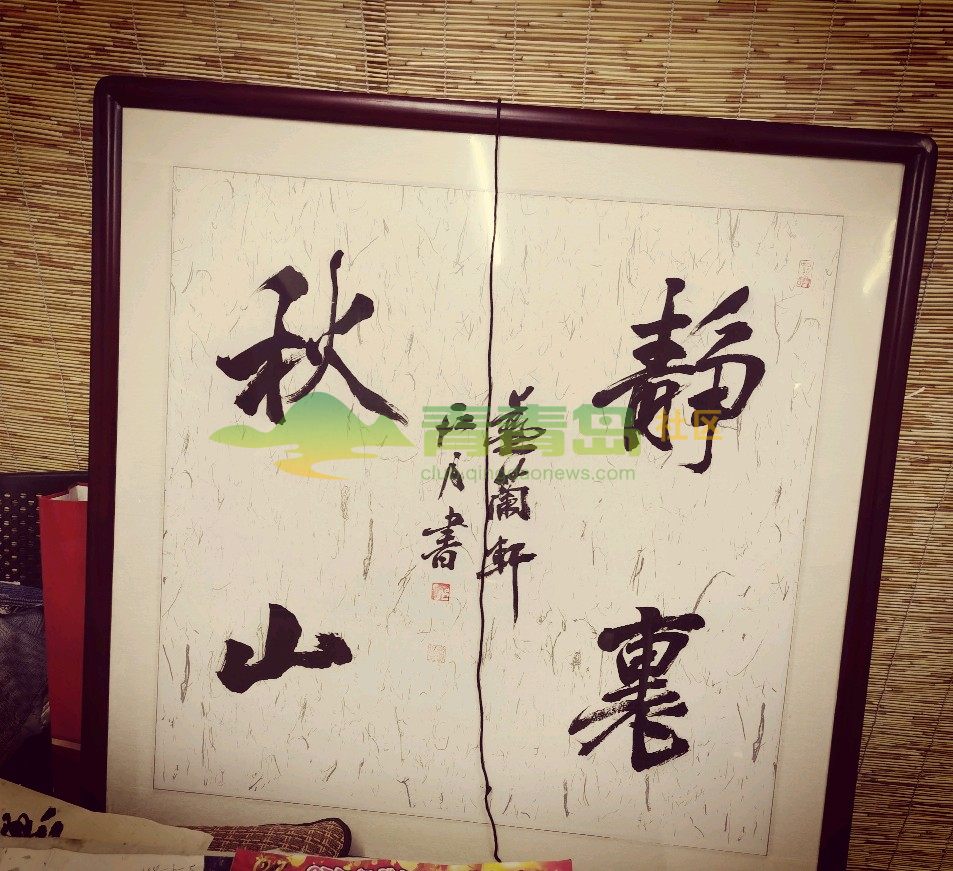 靜裏
秋山
蘭軒
書
青青岛社区
club.qingdaonews.com